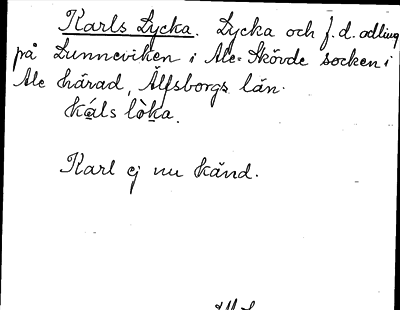 Karls Lycka. Lycka och f.d. odling
på Lunneviken i Ale-Skövde socken i
Ale härad, Älfsborgs län.
Káls lòka.
Karl ej nu känd.